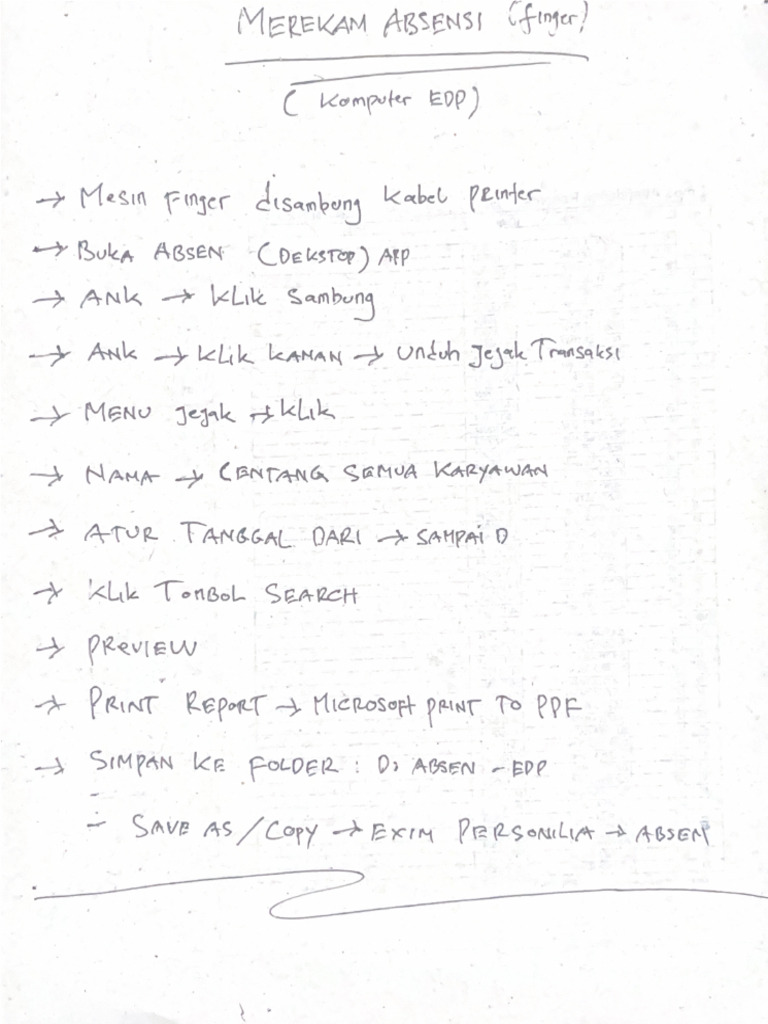 MEREKAM ABSENSI (finger)
( Komputer EDP)
→ Mesin Finger disambung kabel printer
→ Buka ABSEN (DEKSTOP) APP
→ ANK → KLik Sambung
→ ANK → KLik KANAN → Unduh Jejak Transaksi
→ MENU Jejak → KLik
→ NAMA → CENTANG SEMUA KARYAWAN
→ ATUR TANGGAL DARI → SAMPAI D
→ KLik TOMBOL SEARCH
→ PREVIEW
→ PRINT REPORT → MICROSOFT PRINT TO PDF
→ SIMPAN KE FOLDER : D: ABSEN - EDP
- SAVE AS / COPY → EXIM PERSONILIA → ABSEN